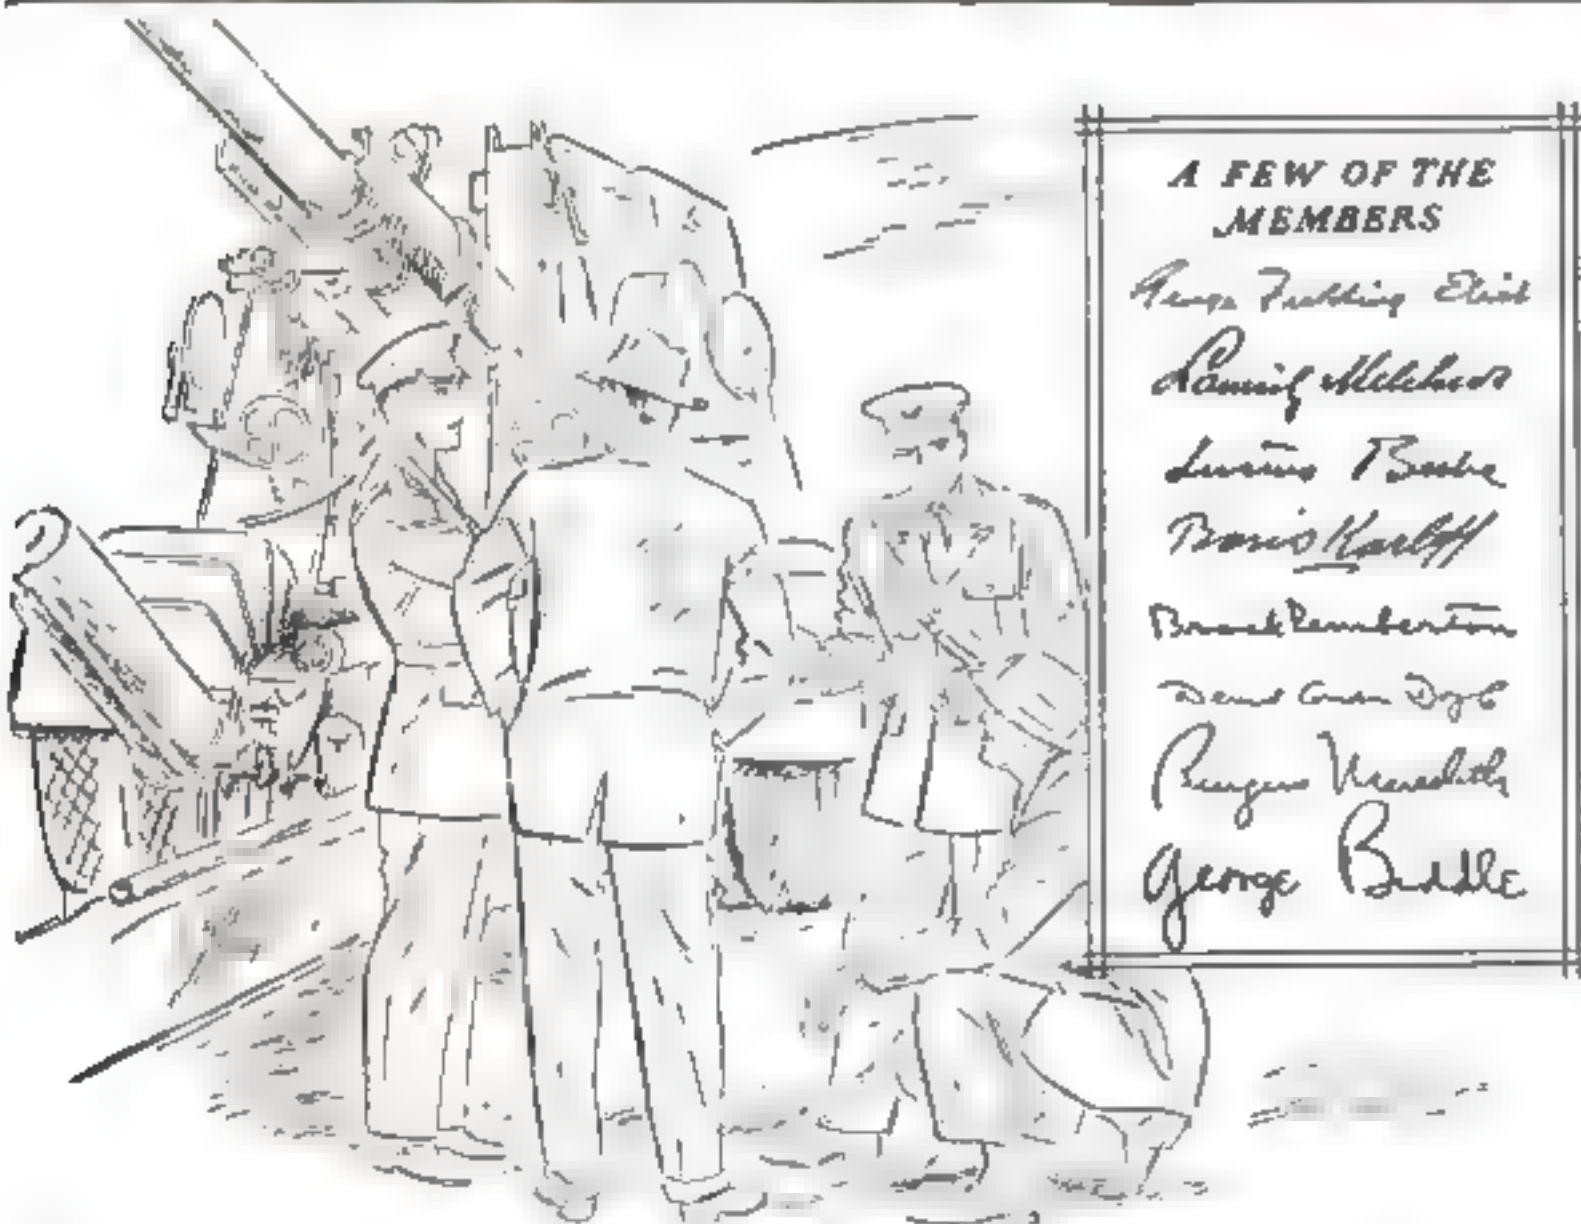 A FEW OF THE
MEMBERS
George Fielding Eliot
Lauritz Melchior
Lucius Beebe
Boris Karloff
Brock Pemberton
Denis Conan Doyle
Burgess Meredith
George Biddle